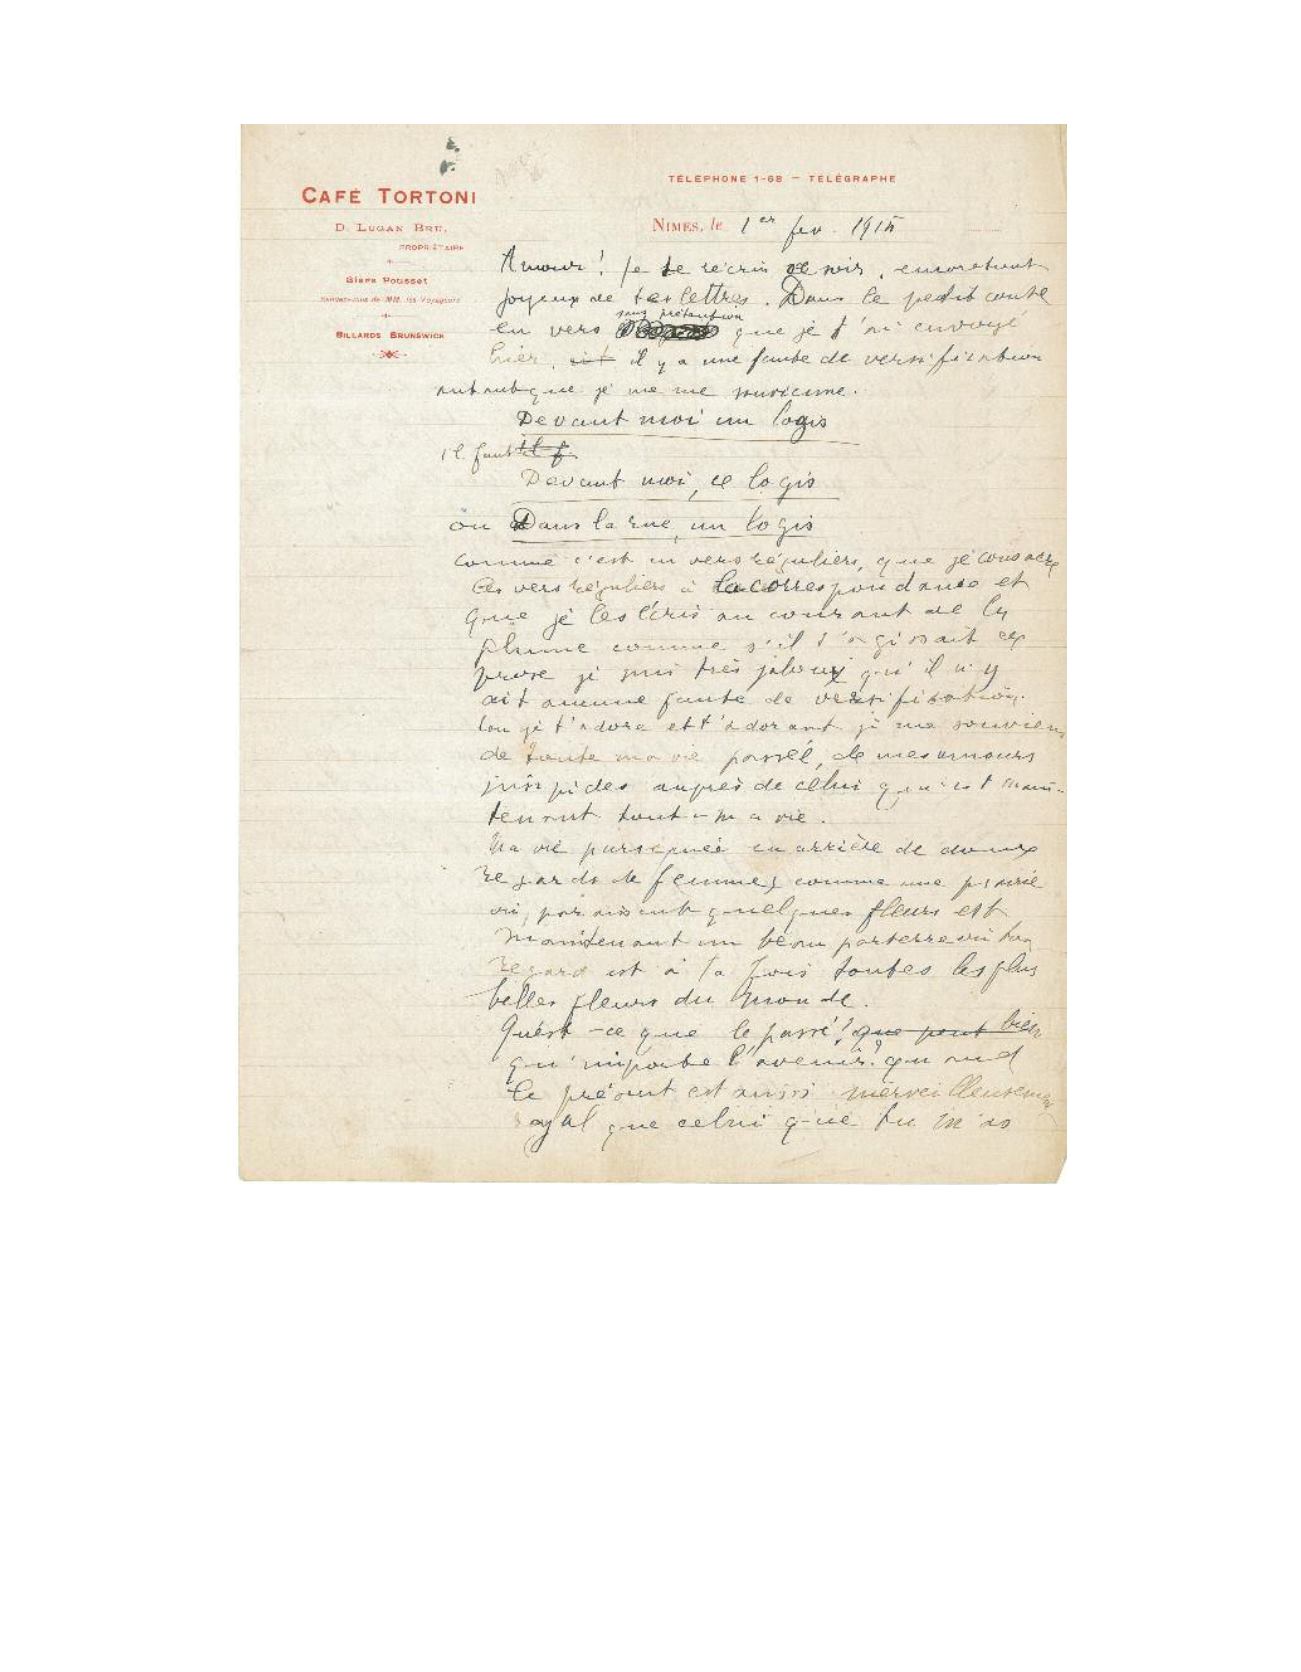 CAFÉ TORTONI
D. LUGAN BRU,
PROPRIÉTAIRE
Glace Pousset
Rendez-vous de MM. les Voyageurs
BILLARDS BRUNSWICK
TÉLÉPHONE 1-68 — TÉLÉGRAPHE
NIMES, le 1er fev. 1915
Amour! Je te récris ce soir, encore tout
joyeux de tes lettres. Dans le petit conte
sans prétention
en vers que je t'ai envoyé
hier, il y a une faute de versification
autant que je me me souvienne.
Devant moi un logis
il faut il f.
Devant moi, ce logis
ou Dans la rue, un logis
comme c'est en vers réguliers, que je consacre
les vers réguliers à la correspondance et
que je les écris au courant de la
plume comme s'il s'agissait de
prose je suis très jaloux qu'il n'y
ait aucune faute de versification.
Lou je t'adore et t'adorant je me souviens
de toute ma vie passée, de mes amours
insipides auprès de celui qui est main-
tenant toute ma vie.
Ma vie parsemée en arrière de doux
regards de femmes comme une prairie
où, paraissent quelques fleurs est
maintenant un beau parterre où ton
regard est à la fois toutes les plus
belles fleurs du monde.
Qu'est-ce que le passé! que peut bien
qu'importe l'avenir? quand
le présent est aussi merveilleusement
que celui que tu m'as